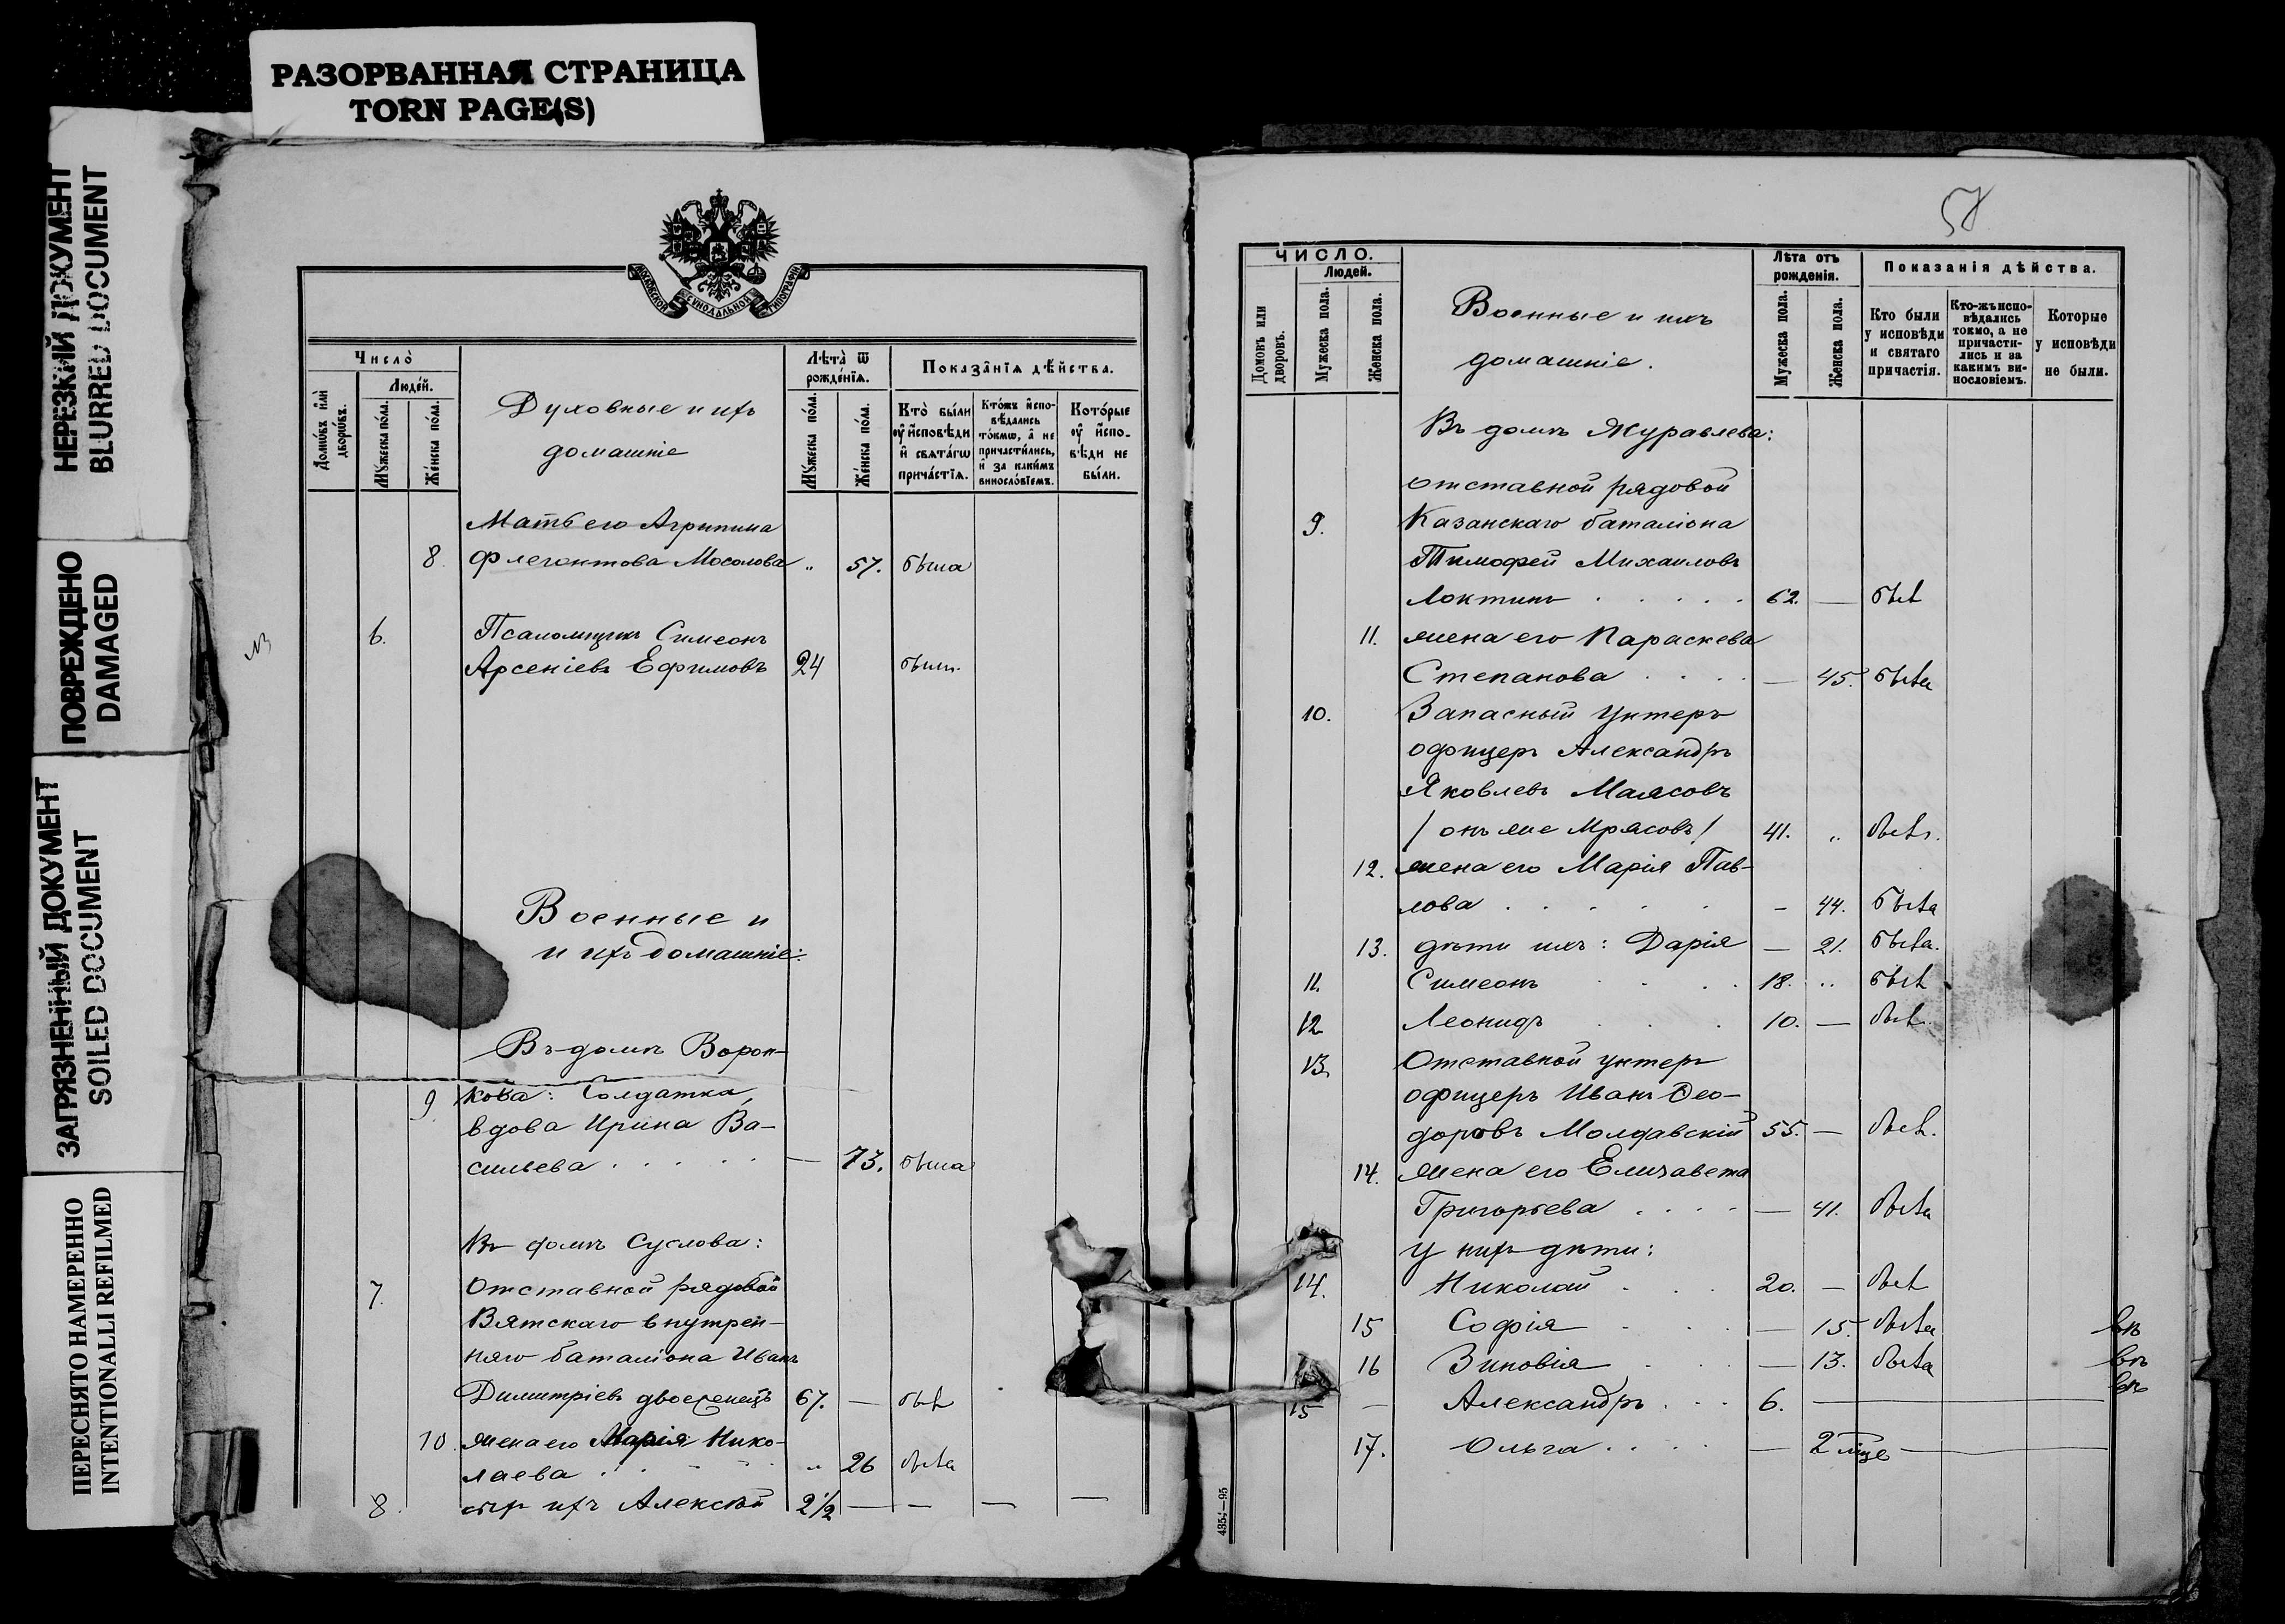 РАЗОРВАННАЯ СТРАНИЦА
TORN PAGE(S)
НЕРЕЗКИЙ ДОКУМЕНТ
BLURRED DOCUMENT
ПОВРЕЖДЕНО
DAMAGED
ЗАГРЯЗНЕННЫЙ ДОКУМЕНТ
SOILED DOCUMENT
ПЕРЕСНЯТО НАМЕРЕННО
INTENTIONALLI REFILMED
МОСКОВСКОЙ СѴНОДАЛЬНОЙ ТИПОГРАФІИ
Число̀
Люде́й.
Домѡ́въ и҆лѝ дворѡ́въ.
Мꙋ́жеска по́ла.
Же́нска по́ла.
Духовные и ихъ
домашніе
Лѣ́та ѿ
рожде́нїѧ.
Мꙋ́жеска по́ла.
Же́нска по́ла.
Показа̑нїѧ дѣ́йства.
Кто̀ бы́ли ᲂу҆ и҆сповѣ́ди и҆ свѧта́гѡ прича́стїѧ.
Кто́жъ и҆сповѣ́дались то́кмѡ, а҆ не причасти́лись, и҆ за каки́мъ виносло́вїемъ.
Кото́рые ᲂу҆ и҆сповѣ́ди не бы́ли.
Мать его Агрипина
8. Флегонтова Мосолова „ 57. была
6. Псаломщикъ Симеонъ
Арсеніевъ Ефимовъ 24 былъ.
Военные и
и ихъ домашніе:
Въ домѣ Ворон-
9. кова: Солдатка,
вдова Ирина Ва-
сильева . . . . . — 73. была
Въ домѣ Суслова:
7. Отставной рядовой
Вятскаго внутрен-
няго баталіона Иванъ
Димитріевъ 67. — былъ
10. жена его Марія Нико-
лаева . . „ 26 была
8. сынъ ихъ Алексѣй 2½ — — — —
ЧИСЛО.
Людей.
Домовъ или дворовъ.
Мужеска пола.
Женска пола.
Военные и ихъ
домашніе.
Лѣта отъ
рожденія.
Мужеска пола.
Женска пола.
Показанія дѣйства.
Кто были у исповѣди и святаго причастія.
Кто-жъ исповѣдались токмо, а не причастились и за какимъ винословіемъ.
Которые у исповѣди не были.
Въ домѣ Журавлева:
отставной рядовой
9. Казанскаго баталіона
Тимофей Михаиловъ
Локтинъ . . . . . 62. — былъ
11. жена его Параскева
Степанова . . . . — 45. была
10. Запасный Унтеръ
офицеръ Александръ
Яковлевъ Маясовъ
/ онъ же Мрясовъ / 41. „ былъ.
12. жена его Марія Пав-
лова . . . . . — 44. была
13. дѣти ихъ: Дарія — 21. была.
11. Симеонъ . . . . 18. „ былъ
12 Леонидъ . . . 10. — былъ.
13. Отставной унтеръ
офицеръ Иванъ Ѳео-
доровъ Молдавскій 55. — былъ.
14. жена его Елизавета
Григорьева . . . . — 41. была
У нихъ дѣти:
14. Николай . . . 20. — былъ
15 Софія . . . — 15. была
16 Зиновія . . . — 13. была
15 — Александръ . . . 6. —
17. Ольга . . . . — 2 мцс —
4354—95